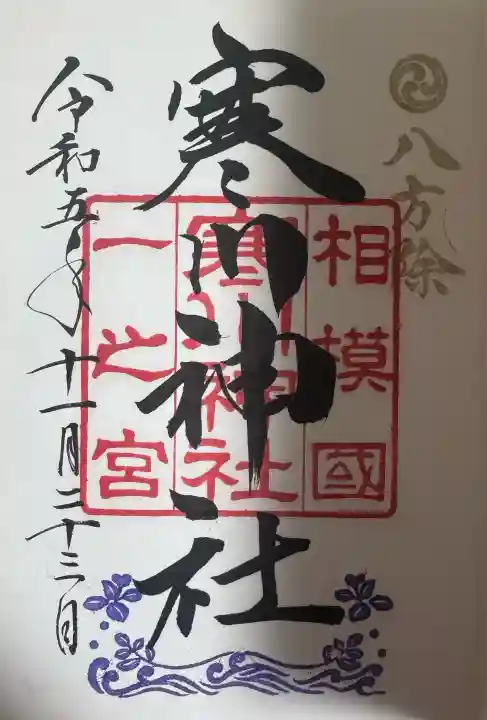 八方除
寒川神社
相模國
寒川神社
一之宮
令和五年十一月二十三日